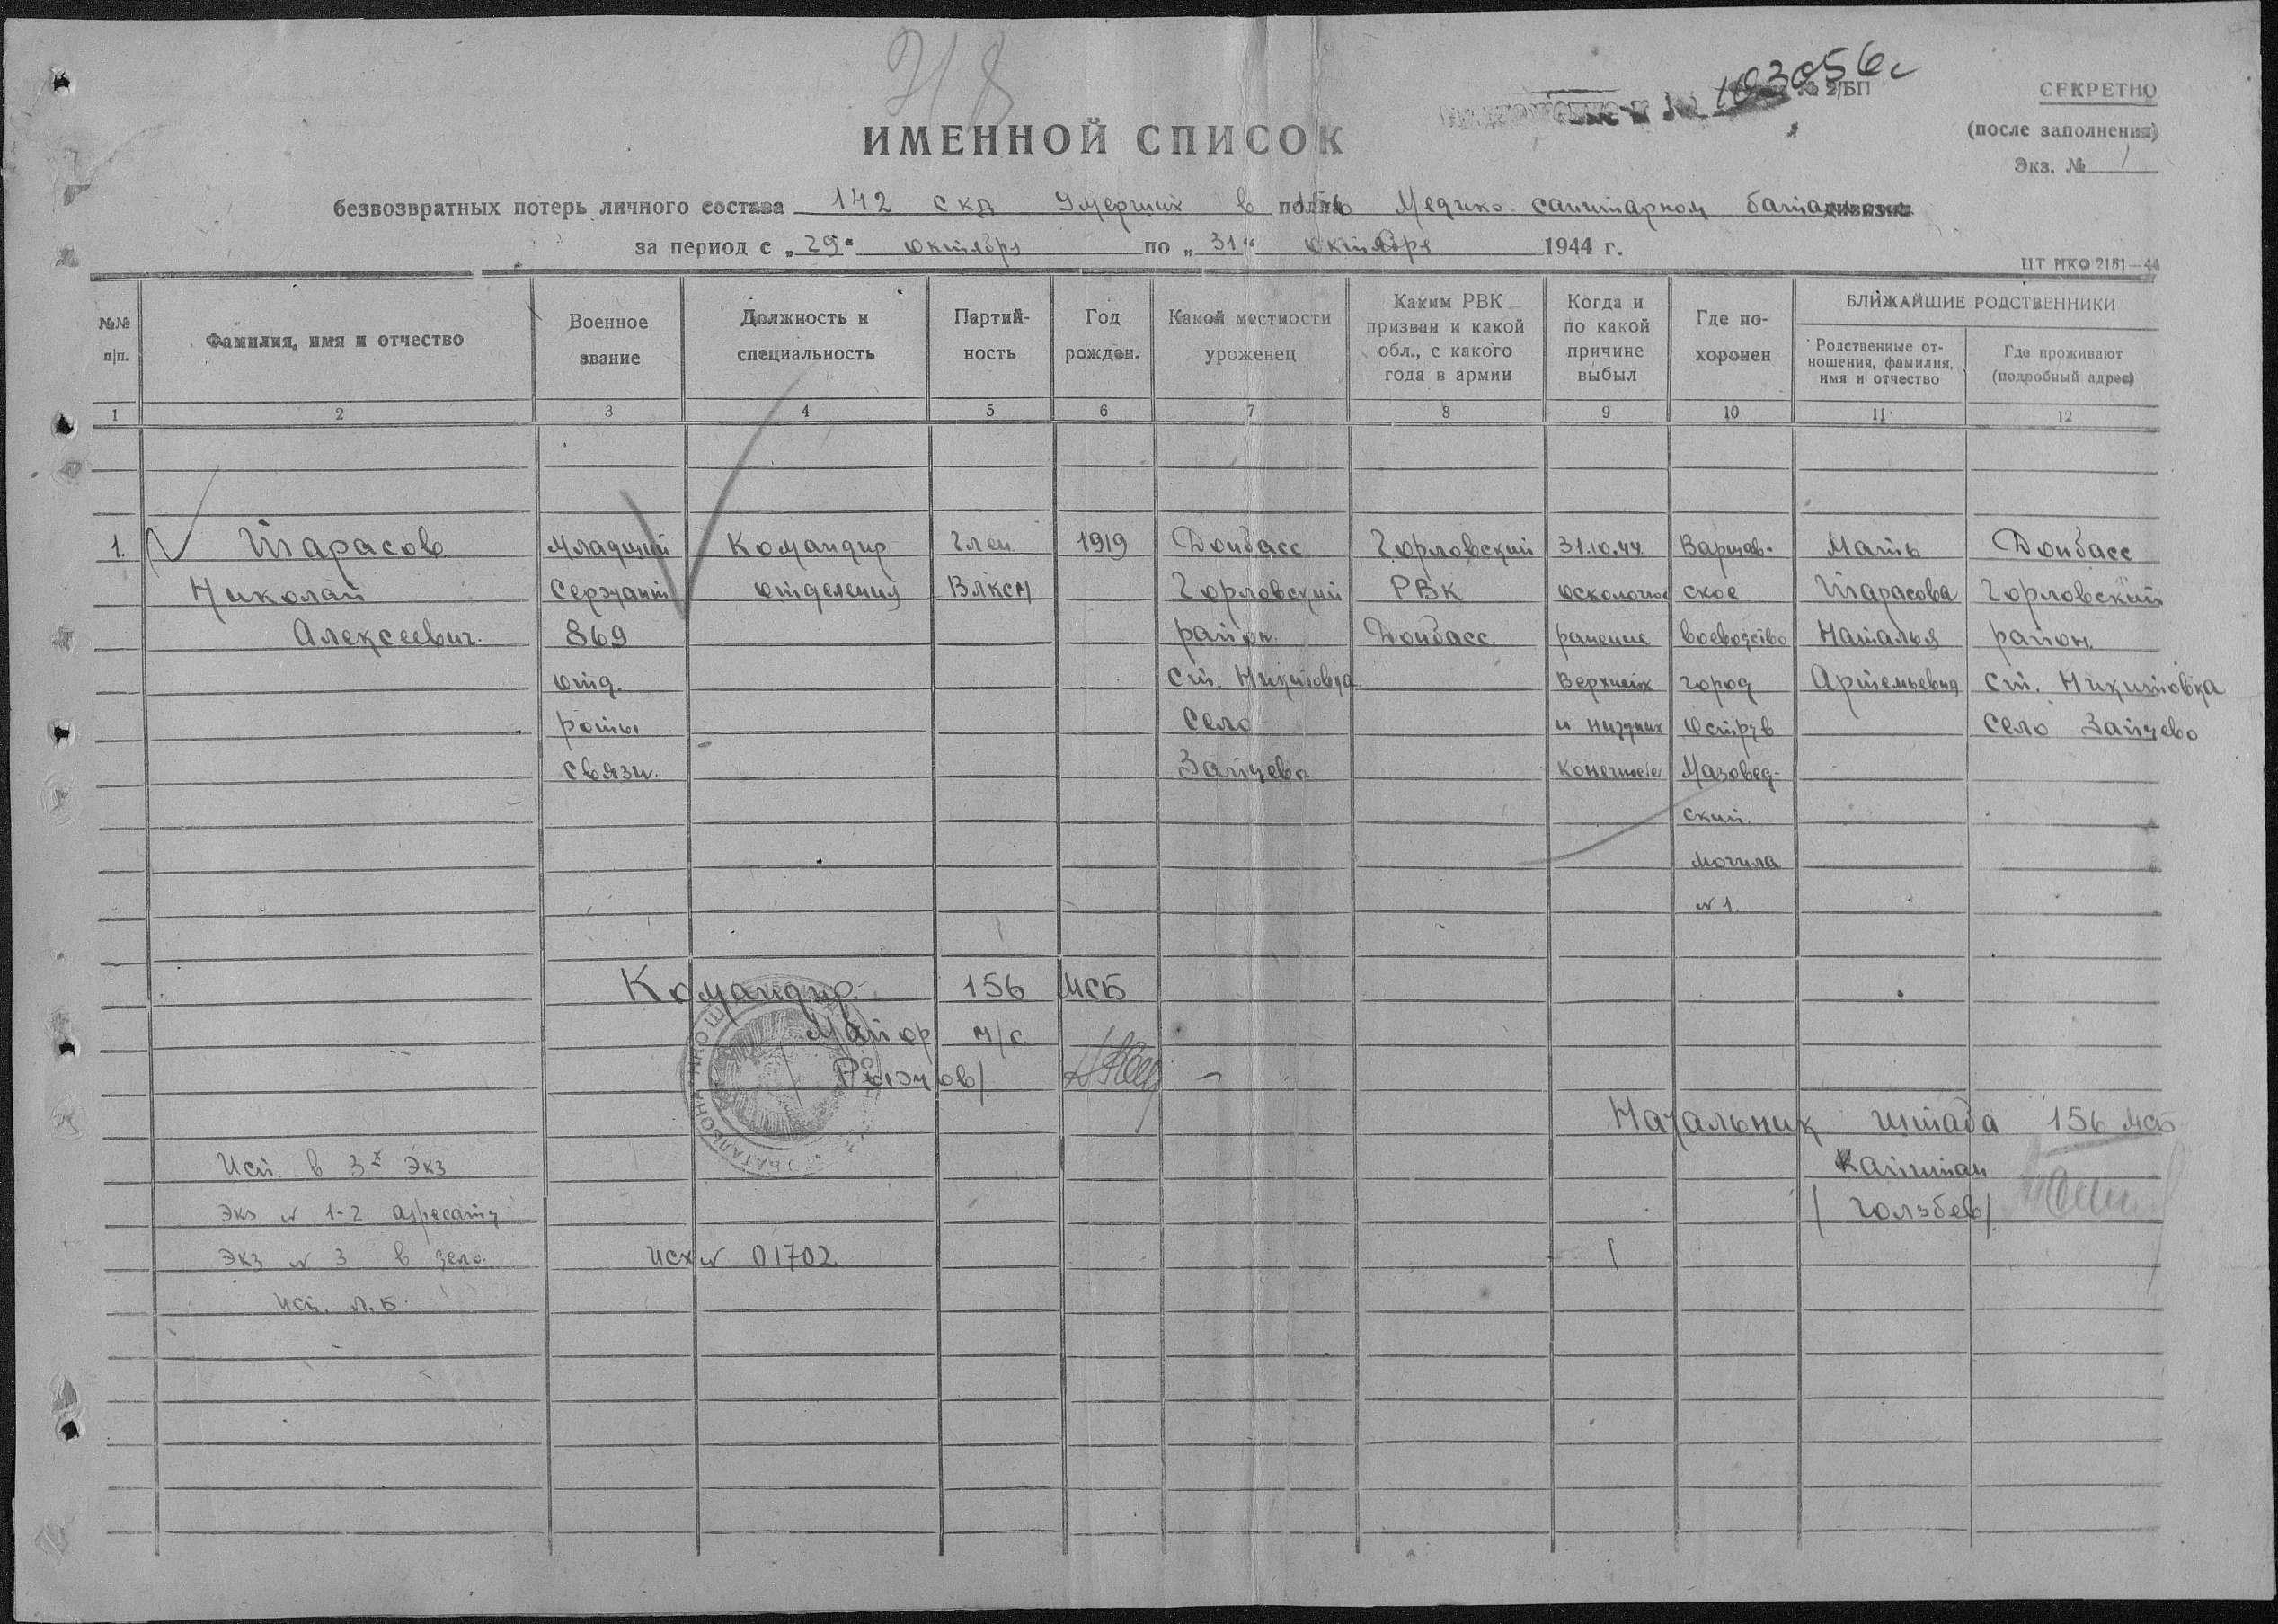 318
103056с
№ 2/БП
СЕКРЕТНО
(после заполнения)
Экз. № 1
ИМЕННОЙ СПИСОК
безвозвратных потерь личного состава 142 СКД Умерших в 156 Медико санитарном бата
за период с „29“ октября по „31“ октября 1944 г.
ЦТ НКО 2161—44
№№ п/п.
Фамилия, имя и отчество
Военное звание
Должность и специальность
Партий-ность
Год рожден.
Какой местности уроженец
Каким РВК призван и какой обл., с какого года в армии
Когда и по какой причине выбыл
Где по-хоронен
БЛИЖАЙШИЕ РОДСТВЕННИКИ
Родственные от-ношения, фамилия, имя и отчество
Где проживают (подробный адрес)
1 2 3 4 5 6 7 8 9 10 11 12
1. Тарасов Младший Командир Член 1919 Донбасс Горловский 31.10.44 Варшав- Мать Донбасс
Николай Сержант отделения ВЛКСМ Горловский РВК осколочное ское Тарасова Горловский
Алексеевич. 869 район. Донбасс. ранение воеводство Наталья район.
отд. ст. Никитовка Верхних город Артемьевна ст. Никитовка
роты село и нижних Острув село Зайцево
связи. Зайцево Мазовед-
ский.
могила
№ 1.
Командир 156 МСБ
Майор м/с
Начальник штаба 156 МСБ
Исп. в 3х экз
Капитан
экз № 1-2 адресату
экз № 3 в дело.
Исх № 01702
исп. Л.Б.